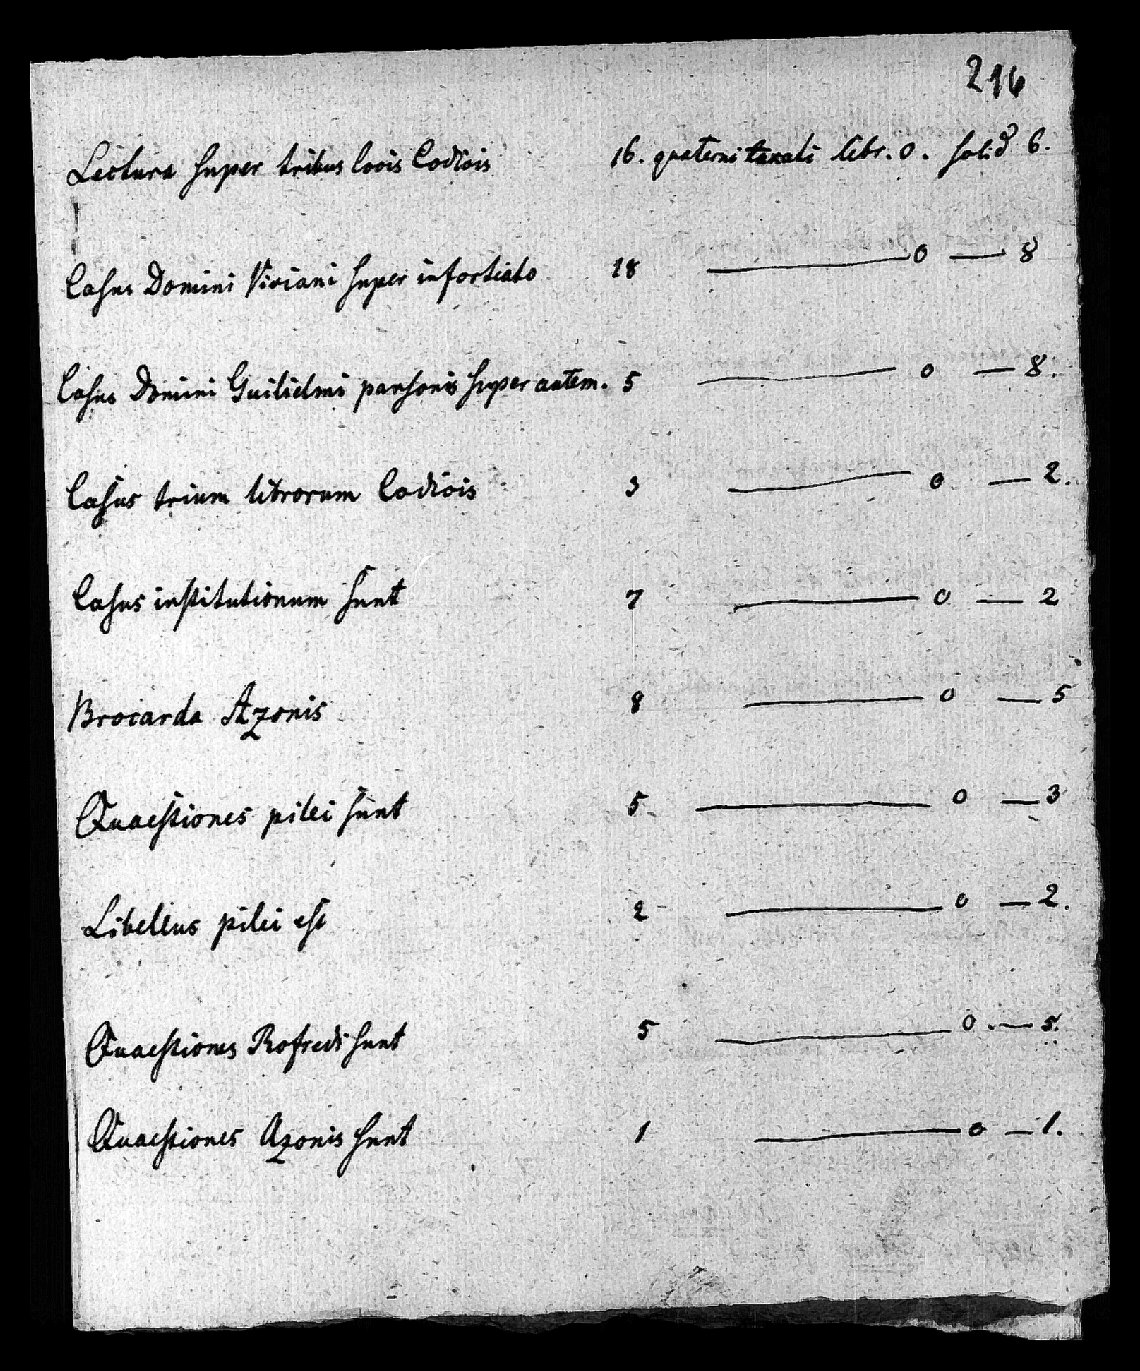 216
Lectura super tribus locis Codicis 16. quaterni taxati libr. 0. solid 6.
Casus Domini Viviani super infortiato 18 — 0 — 8
Casus Domini Guilielmi pansonis super autem. 5 — 0 — 8.
Casus trium librorum Codicis 3 — 0 — 2.
Casus institutionum sunt 7 — 0 — 2
Brocarda Azonis 8 — 0 — 5
Quaestiones pilei sunt 5 — 0 — 3
Libellus pilei est 2 — 0 — 2.
Quaestiones Rofredi sunt 5 — 0 — 5.
Quaestiones Azonis sunt 1 — 0 — 1.